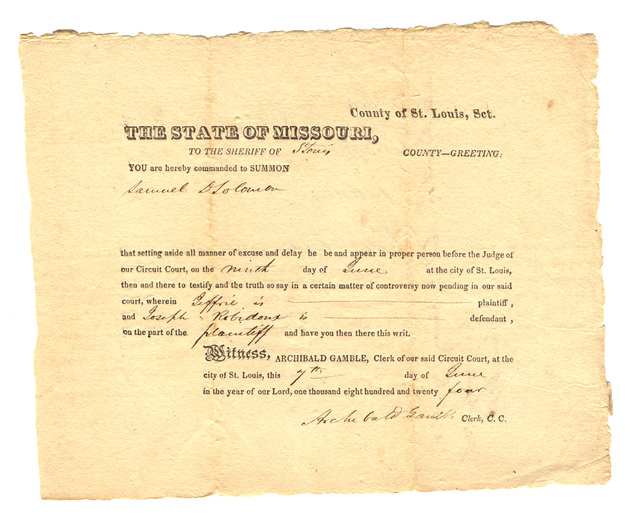 County of St. Louis, Sct.
THE STATE OF MISSOURI,
TO THE SHERIFF OF St Louis COUNTY—GREETING:
YOU are hereby commanded to SUMMON
Samuel D Solomon
that setting aside all manner of excuse and delay he be and appear in proper person before the Judge of
our Circuit Court, on the ninth day of June at the city of St. Louis,
then and there to testify and the truth so say in a certain matter of controversy now pending in our said
court, wherein Jeffrie is plaintiff,
and Joseph Robidoux is defendant,
on the part of the plaintiff and have you then there this writ.
Witness, ARCHIBALD GAMBLE, Clerk of our said Circuit Court, at the
city of St. Louis, this 7th day of June
in the year of our Lord, one thousand eight hundred and twenty four
Archibald Gamble Clerk, C. C.